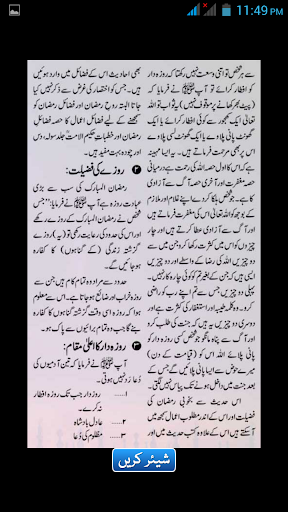 11:49 PM
سے ہر شخص تو اتنی وسعت نہیں رکھتا کہ روزہ دار
کو افطار کرائے تو آپ ﷺ نے فرمایا کہ
(پیٹ بھر کھانے پر موقوف نہیں) یہ ثواب تو اللہ
گھونٹ پانی پلادے یا ایک گھونٹ لسی پلادے
اس پر بھی مرحمت فرمادیتے ہیں۔ یہ ایسا مہینہ
ہے کہ اس کا اول حصہ اللہ کی رحمت ہے، درمیانی
حصہ مغفرت اور آخری حصہ آگ سے
آزادی ہے جو شخص اپنے غلام اور ملازم
کے بوجھ کو ہلکا اللہ تعالیٰ اس کی مغفرت فرماتے ہیں
اور آگ سے آزادی عطا فرماتے ہیں۔ چار
چیزوں کی اس میں کثرت رکھا کرو جن میں سے
دو چیزیں اللہ کی رضا کے واسطے اور دو چیزیں
ایسی ہیں کہ جن کے بغیر تم کو کوئی چارۂ کار نہیں۔
پہلی دو چیزیں جن سے تم اپنے رب کو راضی
کرو وہ کلمہ طیبہ اور استغفار کی کثرت ہے اور
دوسری دو چیزیں یہ ہیں کہ جنت کی طلب کرو
اور آگ سے پناہ مانگو جو شخص کسی روزہ دار کو
پانی پلائے اللہ اس کو (قیامت کے دن)
میرے حوض سے ایسا پانی پلائیں گے جس کے
بعد جنت میں داخل ہونے تک پیاس نہیں لگے گی۔
اس حدیث سے بخوبی رمضان کی
فضیلت اور اس کے اندر مطلوب اعمال سمجھ میں
آسکتے ہیں اس کے علاوہ کتب حدیث میں اور
بھی احادیث اس کے فضائل میں وارد ہوئیں
ہیں۔ جس کو اختصار کی غرض سے ذکر نہیں کیا
جاتا البتہ روح رمضان اور فضائل رمضان کو
سمجھنے کے لیے فضائل اعمال کا حصہ فضائل
رمضان اور خطبات حکیم الامت جلد سولہ، دس
اور چودہ بہت مفید ہیں۔
۲ روزے کی فضیلت:
رمضان المبارک کی سب سے بڑی
عبادت روزہ ہے آپ ﷺ نے فرمایا: "جس
شخص نے رمضان المبارک کے روزے رکھے
اور اس کی حدود کی رعایت رکھی تو (یہ روزہ) اس کی
گذشتہ زندگی (کے گناہوں) کا کفارہ
ہو جائیں گے۔
حدود سے مراد وہ تمام کام ہیں جن سے
روزہ خراب اور ضائع ہو جاتا ہے۔ اس سے معلوم
ہوا کہ ایسا روزہ اسی وقت گذشتہ گناہوں کا کفارہ
بنے گا جب وہ تمام برائیوں سے پاک ہو۔
۳ روزہ دار کا اعلیٰ مقام:
آپ ﷺ نے فرمایا کہ تین آدمیوں کی
دُعا رَد نہیں ہوتی۔
۱..... روزہ دار جب تک روزہ افطار
نہ کرے۔
۲..... عادل بادشاہ
۳..... مظلوم کی دُعا
شیئر کریں